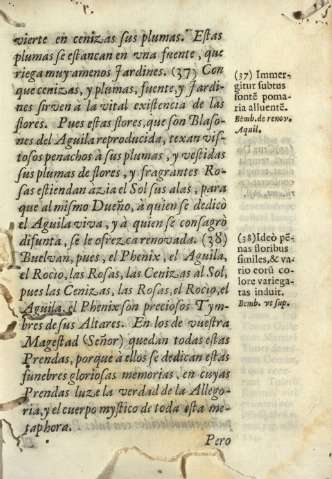 vierte en cenizas sus plumas. Estas
plumas se estancan en vna fuente, que
riega muy amenos Jardines. (37) Con
que cenizas, y plumas, fuente, y Jardi-
nes sirven à la vital existencia de las
flores. Pues estas flores, que son Blaso-
nes del Aguila reproducida, texan vis-
tosos penachos à sus plumas, y vestidas
sus plumas de flores, y fragrantes Ro-
sas estiendan azia el Sol sus alas, para
que al mismo Dueño, à quien se dedicò
el Aguila viva, y à quien se consagrò
difunta, se le ofrezca renovada. (38)
Buelvan, pues, el Phenix, el Aguila,
el Rocio, las Rosas, las Cenizas al Sol,
pues las Cenizas, las Rosas, el Rocio, el
Aguila, el Phenix son preciosos Tym-
bres de sus Altares. En los de vuestra
Magestad (Señor) quedan todas estas
Prendas, porque à ellos se dedican estas
funebres gloriosas memorias, en cuyas
Prendas luza la verdad de la Allego-
ria, y el cuerpo mystico de toda esta me-
taphora.
Pero
(37) Immer-
gitur subtus
fontē poma-
ria alluentē.
Bemb. de renov.
Aquil.
(38) Ideò pē-
nas floribus
similes, & va-
rio eorū co-
lore variega-
tas induit.
Bemb. vt sup.